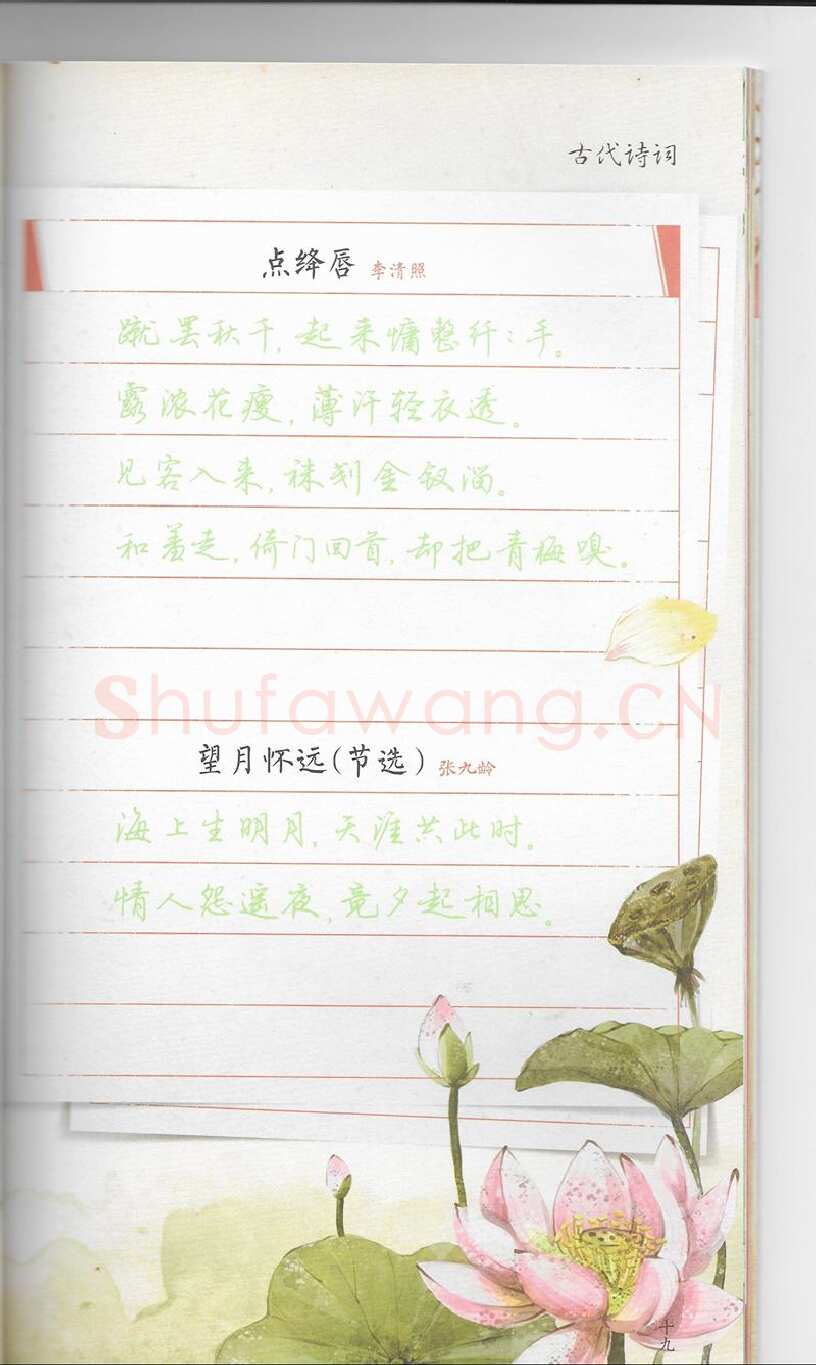 古代诗词
点绛唇 李清照
蹴罢秋千，起来慵整纤：手。
露浓花瘦，薄汗轻衣透。
见客入来，袜刬金钗溜。
和羞走，倚门回首，却把青梅嗅。
Shufawang.CN
望月怀远（节选）张九龄
海上生明月，天涯共此时。
情人怨遥夜，竟夕起相思。
十九